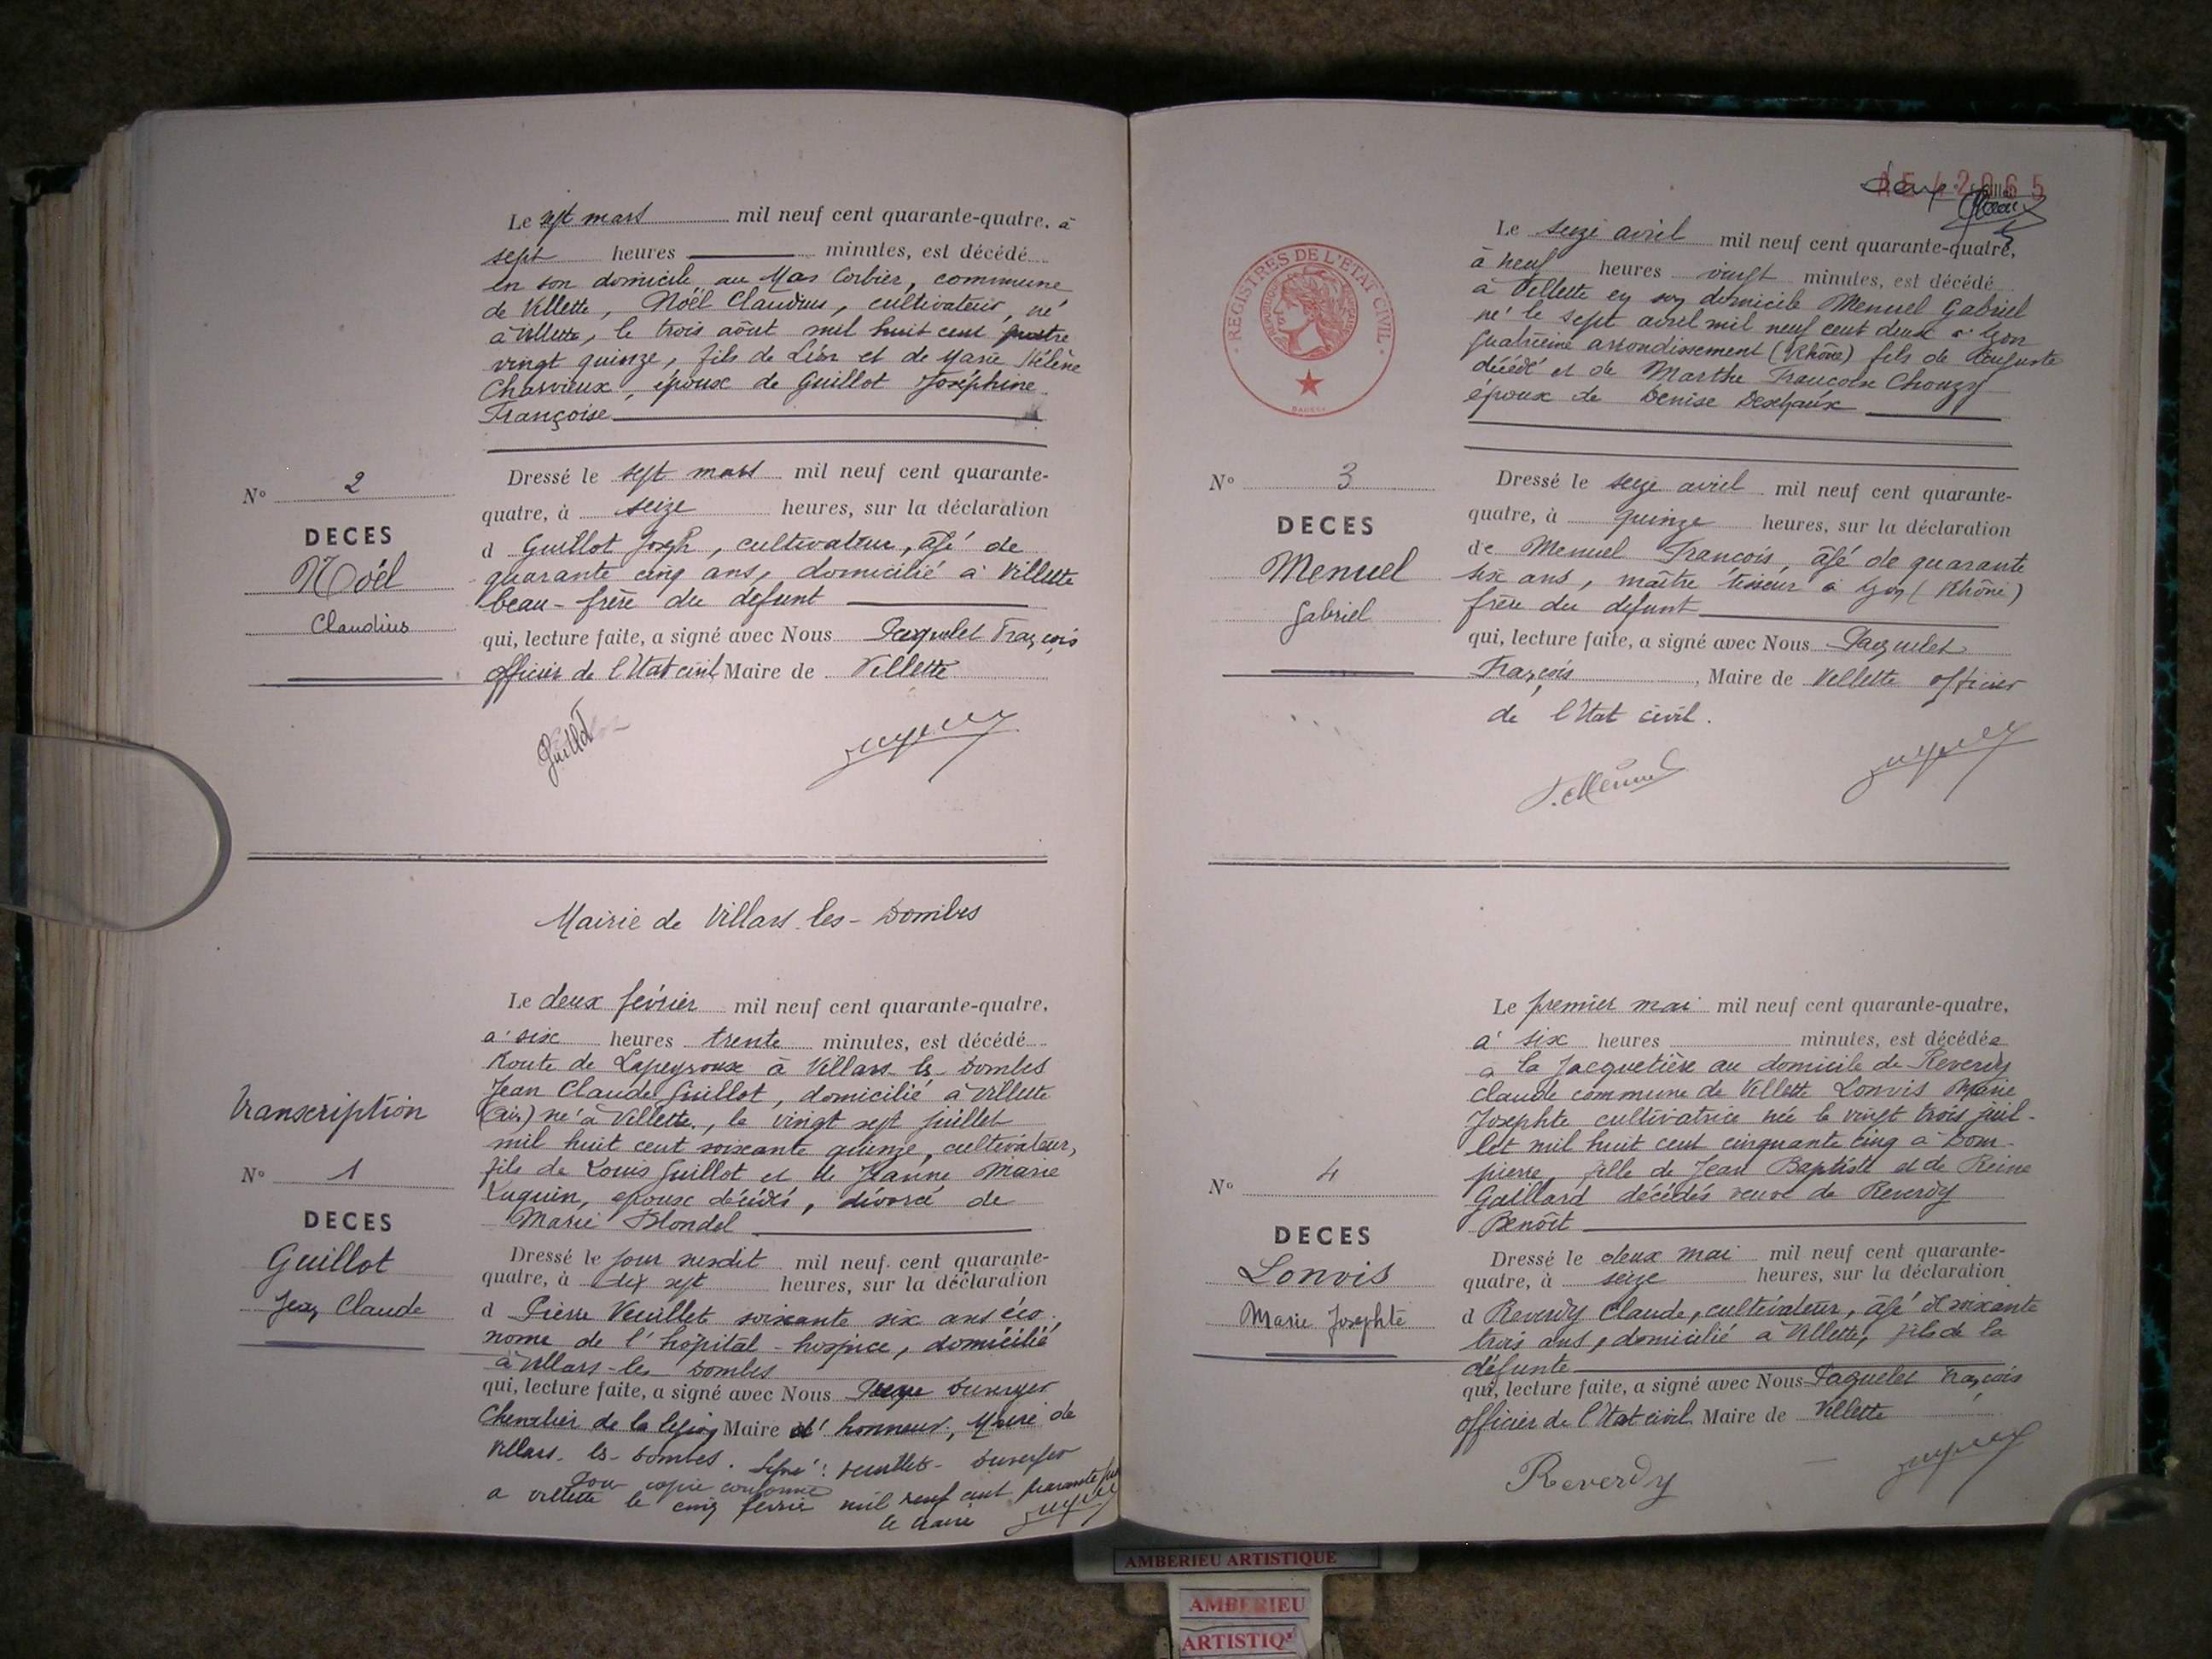 Le sept mars mil neuf cent quarante-quatre, à
sept heures minutes, est décédé
en son domicile au Mas Corbier, commune
de Villette, Noël Claudius, cultivateur, né
à Villette, le trois août mil huit cent quatre
vingt quinze, fils de Léon et de Marie Hélène
Charvieux, époux de Guillot Joséphine
Françoise
N° 2
DECES
Noël
Claudius
Dressé le sept mars mil neuf cent quarante-
quatre, à seize heures, sur la déclaration
d Guillot Joseph, cultivateur, âgé de
quarante cinq ans, domicilié à Villette
beau-frère du défunt
qui, lecture faite, a signé avec Nous Paquelet François
officier de l'Etat civil Maire de Villette
Guillot
Mairie de Villars-les-Dombes
Le deux février mil neuf cent quarante-quatre,
à six heures trente minutes, est décédé
Route de Lapeyrouse à Villars-les-Dombes
Jean Claude Guillot, domicilié à Villette
(Ain) né à Villette, le vingt sept juillet
mil huit cent soixante quinze, cultivateur,
fils de Louis Guillot et de Jeanne Marie
Luquin, époux décédés, divorcé de
Marie Blondel
Transcription
N° 1
DECES
Guillot
Jean Claude
Dressé le jour susdit mil neuf cent quarante-
quatre, à dix sept heures, sur la déclaration
d Pierre Veuillet soixante six ans éco-
nome de l'hôpital-hospice, domicilié
à Villars-les-Dombes
qui, lecture faite, a signé avec Nous Duverger
Chevalier de la légion Maire d'honneur, Maire de
Villars-les-Dombes. Signé: Veuillet - Duverger
Pour copie conforme
a Villette le cinq février mil neuf cent quarante
le Maire
AE 42065
REGISTRES DE L'ETAT CIVIL
Le seize avril mil neuf cent quarante-quatre,
à neuf heures vingt minutes, est décédé
à Villette en son domicile Menuel Gabriel
né le sept avril mil neuf cent deux à Lyon
quatrième arrondissement (Rhône) fils de Auguste
décédé et de Marthe Françoise Chouzy
époux de Denise Deschaux
N° 3
DECES
Menuel
Gabriel
Dressé le seize avril mil neuf cent quarante-
quatre, à quinze heures, sur la déclaration
de Menuel François, âgé de quarante
six ans, maître tisseur à Lyon (Rhône)
frère du défunt
qui, lecture faite, a signé avec Nous Paquelet
François, Maire de Villette officier
de l'Etat civil.
Le premier mai mil neuf cent quarante-quatre,
à six heures minutes, est décédée
à la Jacquetière au domicile de Reverdy
Claude commune de Villette Lonvis Marie
Josephte cultivatrice née le vingt trois juil-
let mil huit cent cinquante cinq à Dom-
pierre fille de Jean Baptiste et de Reine
Gaillard décédés veuve de Reverdy
Benoît
N° 4
DECES
Lonvis
Marie Josephte
Dressé le deux mai mil neuf cent quarante-
quatre, à seize heures, sur la déclaration
d Reverdy Claude, cultivateur, âgé de soixante
trois ans, domicilié à Villette, fils de la
défunte
qui, lecture faite, a signé avec Nous Paquelet François
officier de l'Etat civil Maire de Villette
Reverdy
AMBERIEU ARTISTIQUE
AMBERIEU
ARTISTIQ